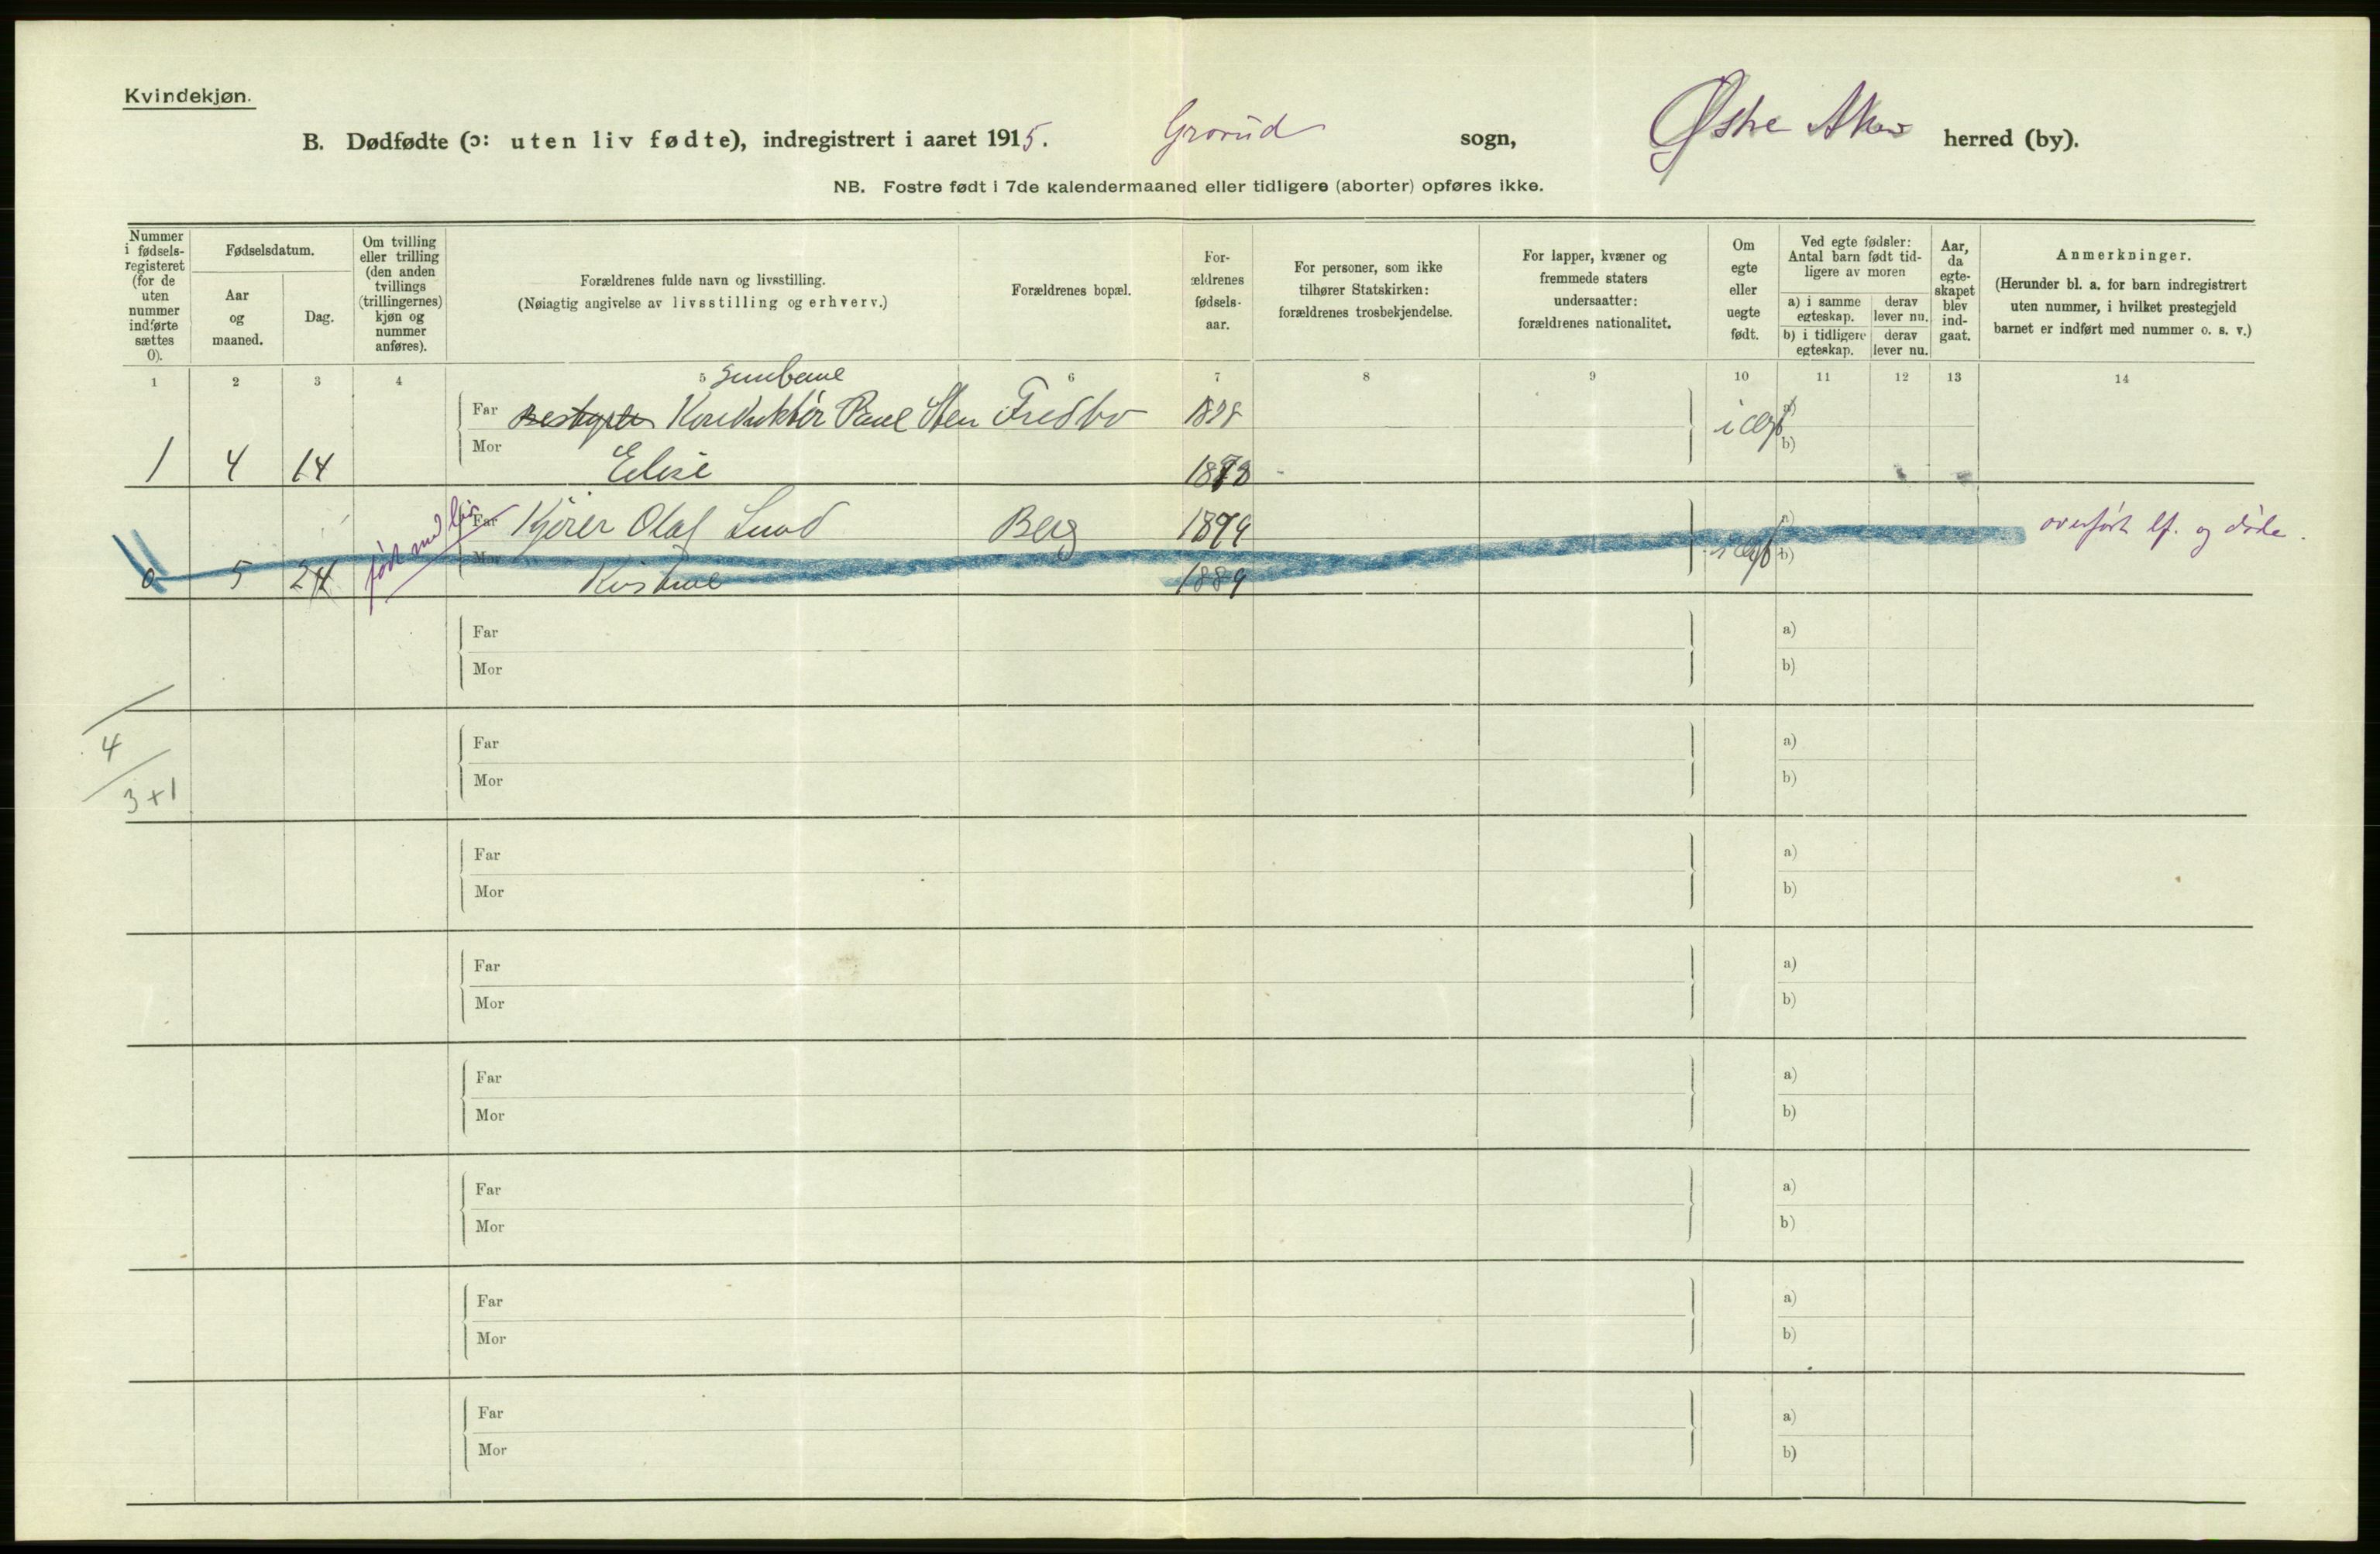 Kvindekjøn.
B. Dødfødte (ɔ: uten liv fødte), indregistrert i aaret 1915. Grorud sogn, Østre Aker herred (by).
NB. Fostre født i 7de kalendermaaned eller tidligere (aborter) opføres ikke.
Nummer i fødsels-registeret (for de uten nummer indførte sættes 0).
Fødselsdatum.
Aar og maaned.
Dag.
Om tvilling eller trilling (den anden tvillings (trillingernes) kjøn og nummer anføres).
Forældrenes fulde navn og livsstilling.
(Nøiagtig angivelse av livsstilling og erhverv.)
Forældrenes bopæl.
For-ældrenes fødsels-aar.
For personer, som ikke tilhører Statskirken: forældrenes trosbekjendelse.
For lapper, kvæner og fremmede staters undersaatter: forældrenes nationalitet.
Om egte eller uegte født.
Ved egte fødsler: Antal barn født tid-ligere av moren
a) i samme egteskap.
derav lever nu.
b) i tidligere egteskap.
derav lever nu.
Aar, da egte-skapet blev ind-gaat.
Anmerkninger.
(Herunder bl. a. for barn indregistrert uten nummer, i hvilket prestegjeld barnet er indført med nummer o. s. v.)
1 2 3 4 5 6 7 8 9 10 11 12 13 14
Far Bestyrer Konduktør Paul Sten Fredbo 1878 a)
Mor b)
1 4 14 Elise
født med liv Far Kjører Olaf Lund Berg 1879 a) overført lf. og døde.
Mor b)
0 5 24 Kristine 1889
Far a)
Mor b)
4
3+1
Far a)
Mor b)
Far a)
Mor b)
Far a)
Mor b)
Far a)
Mor b)
Far a)
Mor b)
Far a)
Mor b)
Far a)
Mor b)